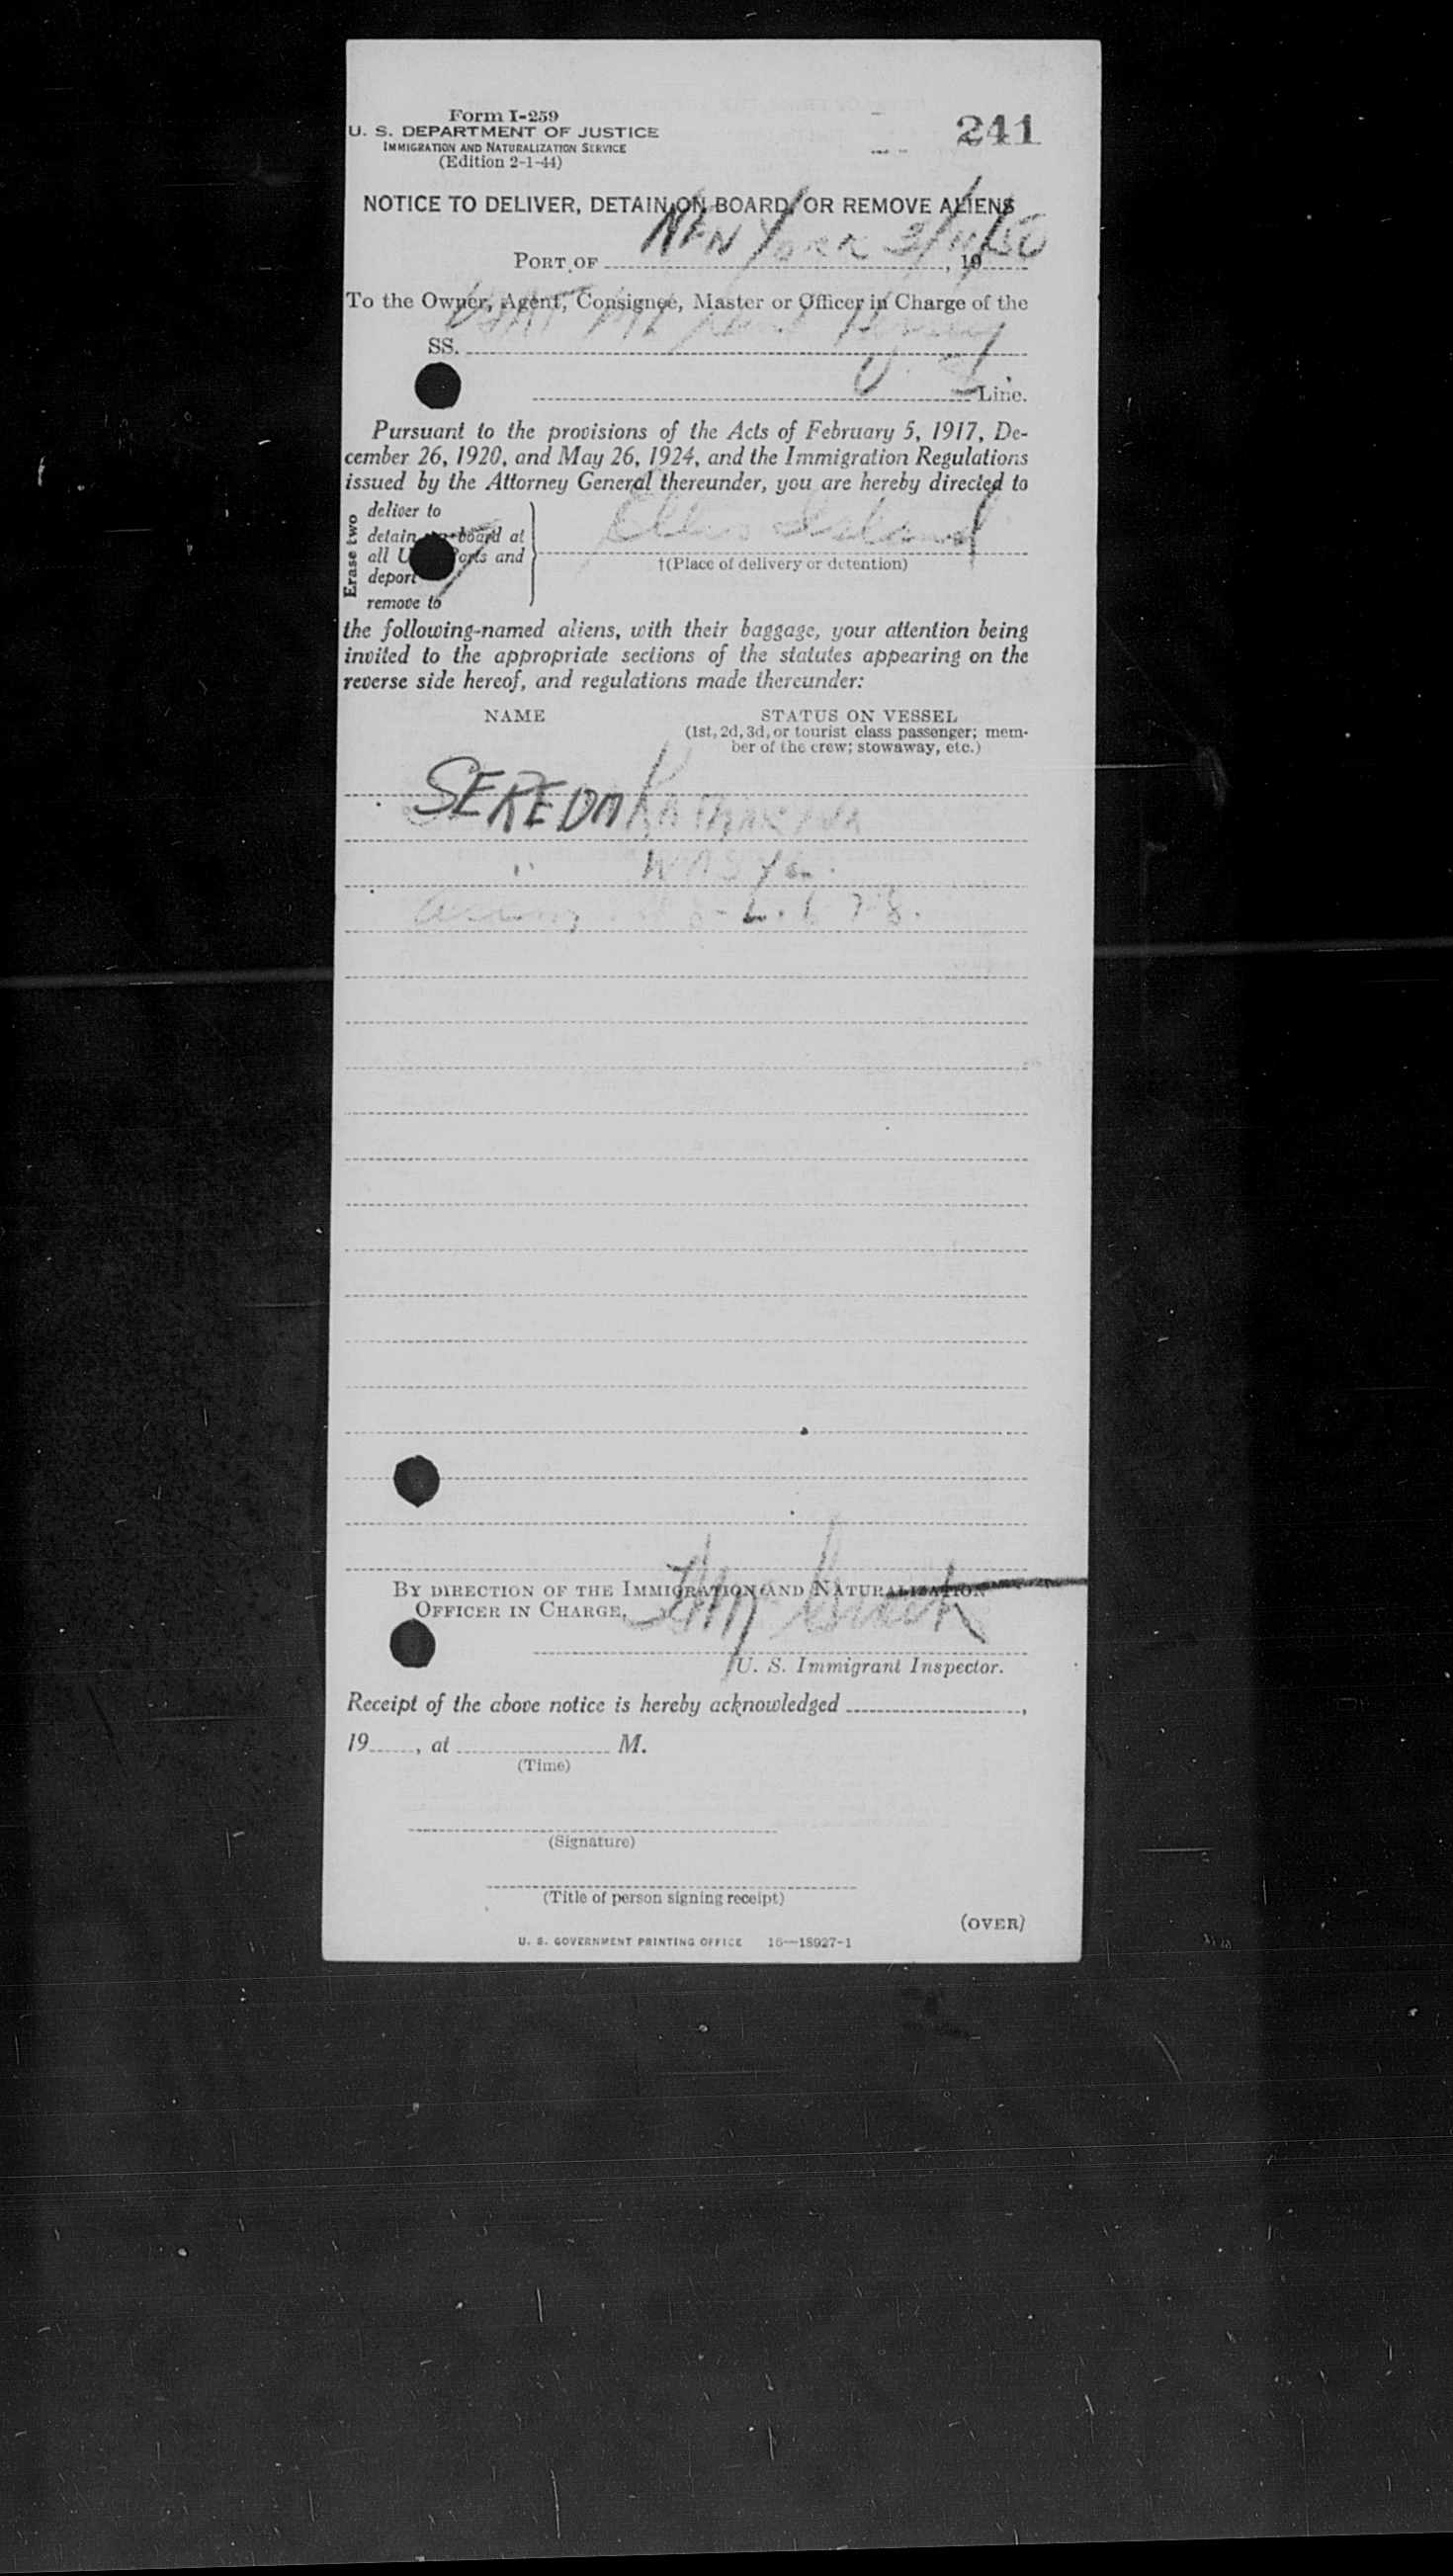 Form I-259
U. S. DEPARTMENT OF JUSTICE
IMMIGRATION AND NATURALIZATION SERVICE
(Edition 2-1-44)
241
NOTICE TO DELIVER, DETAIN ON BOARD, OR REMOVE ALIENS
PORT OF New York 3/11/50, 19
To the Owner, Agent, Consignee, Master or Officer in Charge of the
SS.
U. S. Line.
Pursuant to the provisions of the Acts of February 5, 1917, De-
cember 26, 1920, and May 26, 1924, and the Immigration Regulations
issued by the Attorney General thereunder, you are hereby directed to
Erase two
deliver to
detain board at
all and
deport
remove to
Ellis Island
†(Place of delivery or detention)
the following-named aliens, with their baggage, your attention being
invited to the appropriate sections of the statutes appearing on the
reverse side hereof, and regulations made thereunder:
NAME
STATUS ON VESSEL
(1st, 2d, 3d, or tourist class passenger; mem-
ber of the crew; stowaway, etc.)
SEREDA KATHARINA
" WASYL
BY DIRECTION OF THE IMMIGRATION AND NATURALIZATION
OFFICER IN CHARGE,
U. S. Immigrant Inspector.
Receipt of the above notice is hereby acknowledged ,
19 , at M.
(Time)
(Signature)
(Title of person signing receipt)
(OVER)
U. S. GOVERNMENT PRINTING OFFICE 16—18927-1